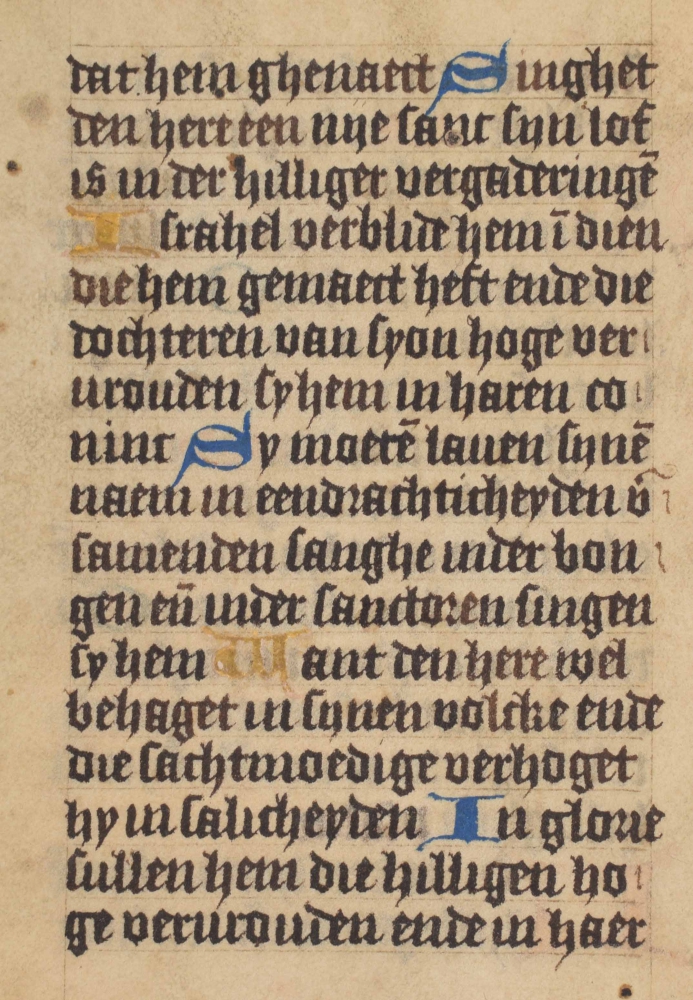 dat hem ghenaect Singhet
den here een nye sanc syn lof
is in der hilliger vergaderingē
Israhel verblide hem ī dien
die hem gemaect heft ende die
dochteren van syon hoge ver
vrouden sy hem in haren co
ninc Sy moetē lauen synē
naem in eendrachticheyden v̄
samenden sanghe inder bon
gen en̄ inder sanctoren singen
sy hem Want den here wel
behaget in synen volcke ende
die sachtmoedige verhoget
hy in salicheyden In glorie
sullen hem die hilligen ho
ge vervrouden ende in haer